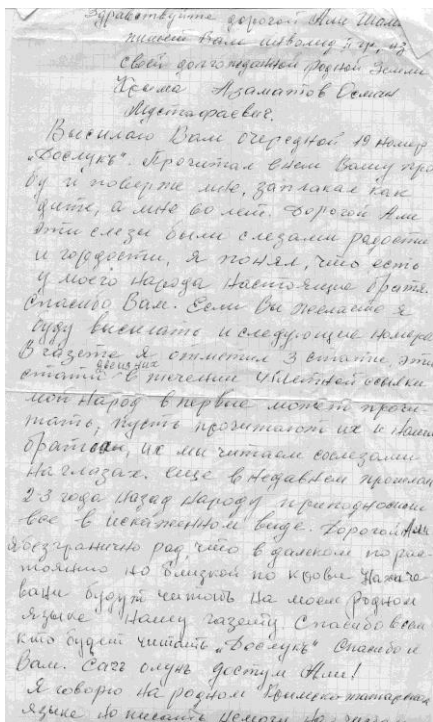 Здравствуйте дорогой Али Шам
пишет Вам инволид II гр, из
своей долгожданной родной Земли
Крыма Азаматов Осман
Мустафаевич.
Высилаю Вам очередной 19 номер
„Дослукъ". Прочитал в нем Вашу
бу и поверже мне, заплакал как
дите, а мне 60 лет. Дорогой Али
эти слезы были слезами радости
и гордости, я понял, что есть
у моего народа настоящие братя.
Спасибо Вам. Если Вы желаете я
буду высылать и следующие номера
В газете я отметил 3 статие эти
статий две из них в течении летней ссылки
мой народ в первие может прочи-
тать, пусть прочитают их и Наши
братья, их ми читаем со слезами
на глазах. Еще в недавнем прошлом
2-3 года назад народу приподносили
все в искаженном виде. Дорогой Али
я безгранично рад, что в далеком по рас-
тоянию но близкой по крови
вани будут читать на моем родном
языке Нашу газету. Спасибо всем
кто будет читать „Дослукъ" Спасибо и
Вам. Сагъ олунъ достум Али!
Я говорю на родном Крымско-татарском
языке но писать немогу